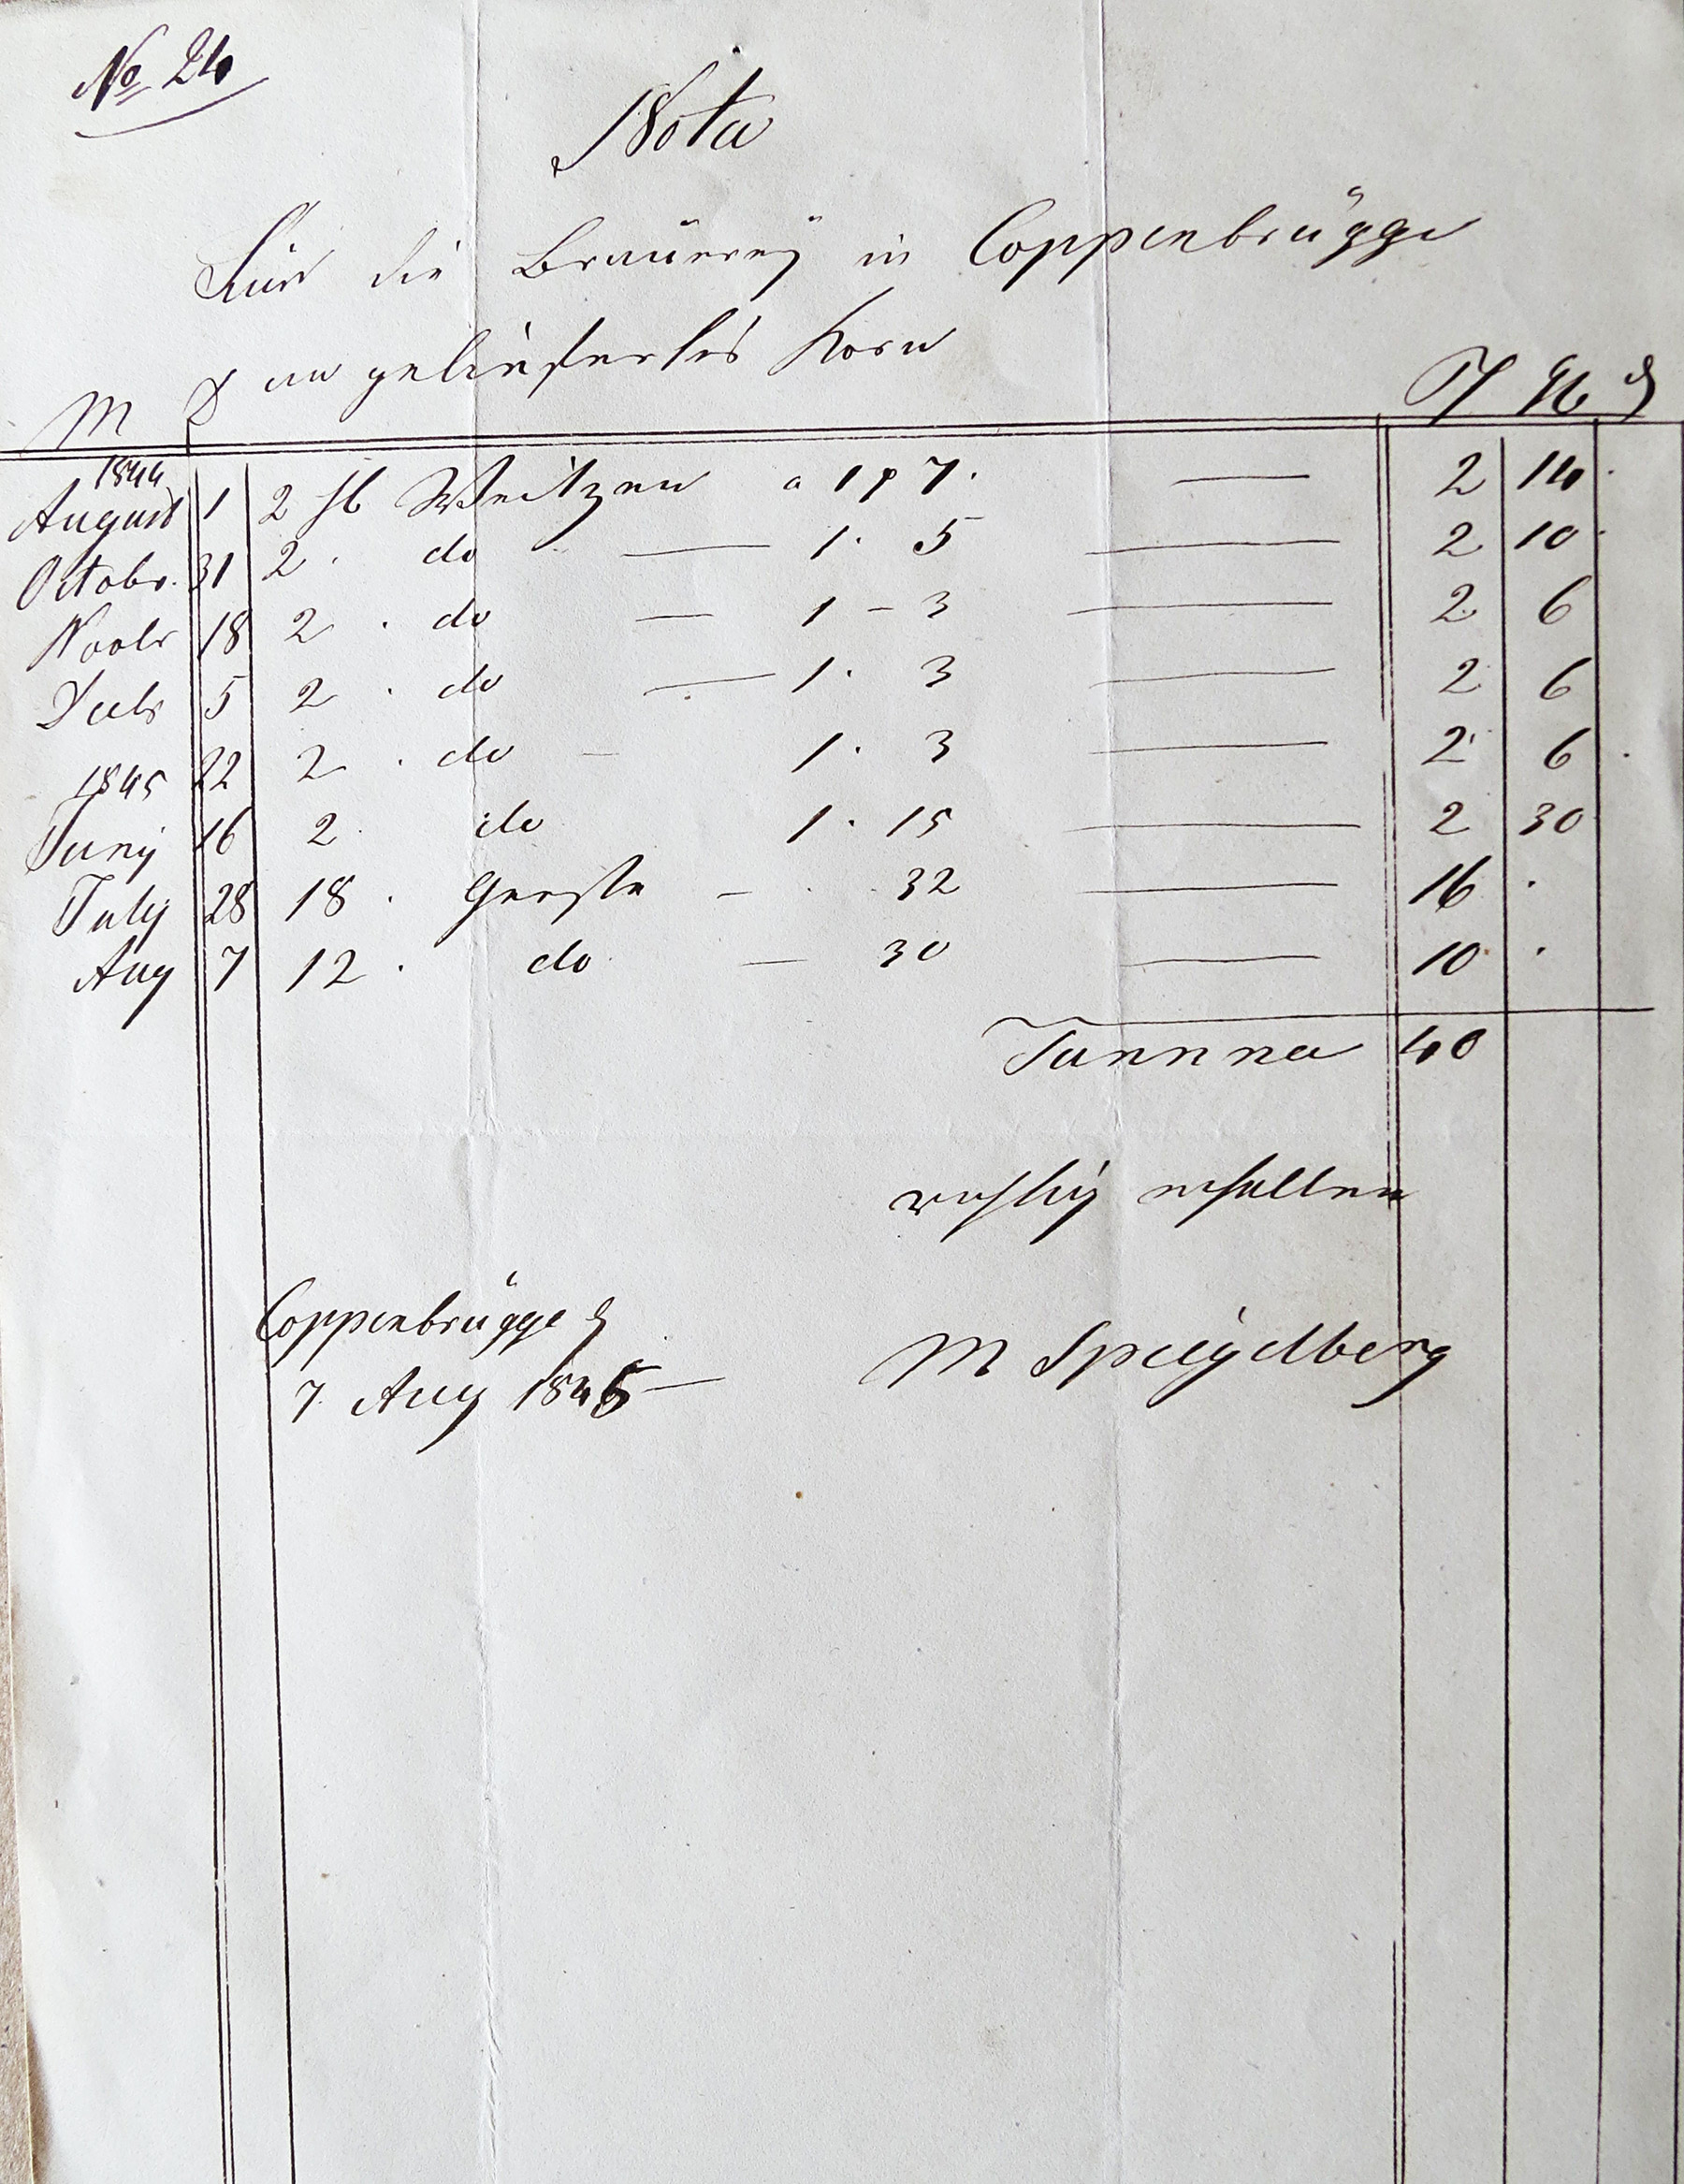 No 24
Nota
Für die Brauerey in Coppenbrügge
an geliefertes Korn
M D
1844
August 1 2 Weitzen a 1 7. — 2 14
Octobr. 31 2 . do — 1. 5 — 2 10
Novbr 18 2 . do — 1 – 3 — 2 6
Decbr 5 2 . do — 1. 3 — 2 6
22 2 . do – 1. 3 — 2 6
1845
Juny 16 2. do 1. 15 — 2 30
July 28 18 . Gerste – . 32 — 16 .
Aug 7 12 . do — 30 — 10 .
Summa 40
richtig erhalten
Coppenbrügge d
7. Aug 1845 —
M Spiegelberg